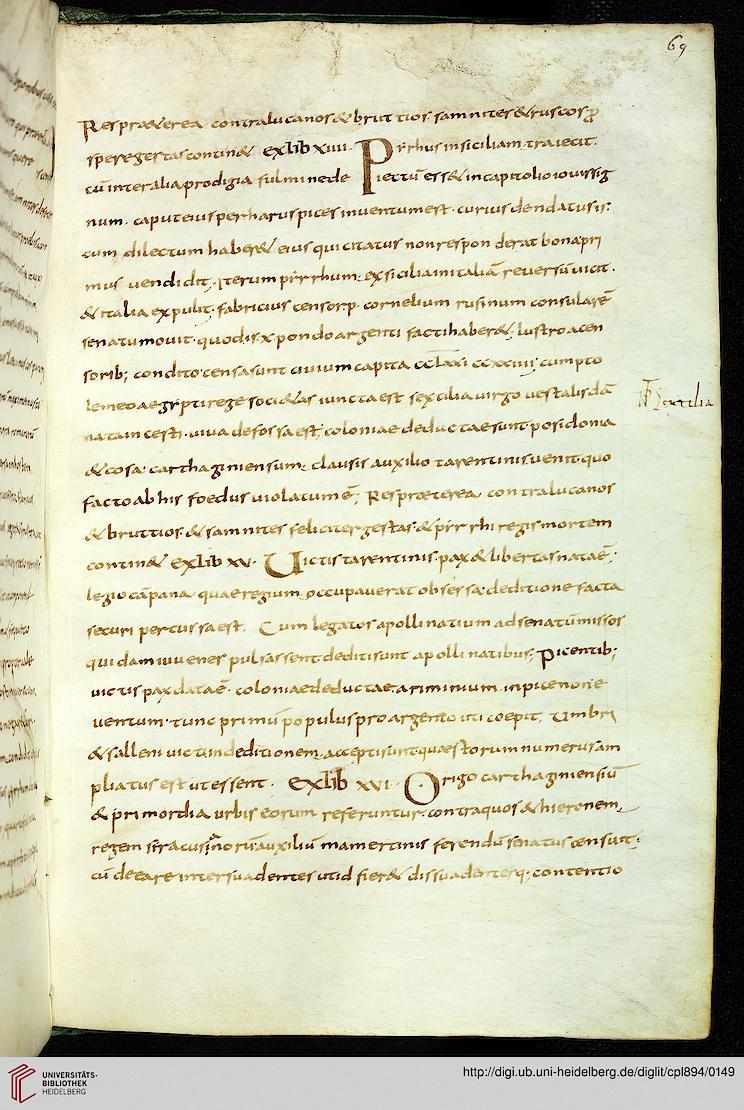 69
Res praeterea contra lucanos & bruttios samnites & ruscos p̱ro
spere gestas contin& ex lib xiiii · Pirrhus in siciliam traiecit ·
cū inter alia prodigia fulmine de iectū ess& in capitolio iouis sig
num · caput eius per haruspices inuentum est · curius dendatus is:
cum dilectum haber& eius qui citatus non respon derat bona pri
mus uendidit ; Iterum pirrhum · ex sicilia in italiā reuersū uicit ·
& italia expulit ; fabricius censor p · cornelium rusinum consularē
senatu mouit · quod is · x · pondo argenti facti haber& ; lustro a cen
sorib; condito · censa sunt ciuium capita cclxxi ccxxiiii ; cum pto
lemeo aegypti rege soci&as iuncta est sex cilia uirgo uestalis dā
nata incesti · uiua defossa est ; coloniae deductae sunt · posidonia
& cosa · carthaginiensum · clausis auxilio tarentinis uenit · quo
facto ab his foedus uiolatum ē ; Res praeterea contra lucanos
& bruttios · & samnites feliciter gestas · & pirrhi regis mortem
contin& ex lib xv · Uictis tarentinis · pax & libertas nata ē ;
legio cāpana quae regium occupauerat obsessa · deditione facta
securi percussa est · Cum legatos apollinatium ad senatū missos
quidam iuuenes pulsassent dediti sunt apollinatibus ; Picentib;
uictis pax data ē · coloniae deductae · ariminium in piceno ne
uentum · tunc primū populus pro argento uti coepit · Umbri
& sallent uicti in deditionem accepti sunt quaestorum numerus am
pliatus est ut essent · ex lib xvi · Origo carthaginiensiū
& primordia urbis eorum referuntur · contra quos & hieronem
regem siracusanorū auxiliū mamertinis ferendū senatus censuit ;
cū de ea re inter suadentes ut id fier& dissuadentesq; contentio
sextilia
UNIVERSITÄTS-
BIBLIOTHEK
HEIDELBERG
http://digi.ub.uni-heidelberg.de/diglit/cpl894/0149